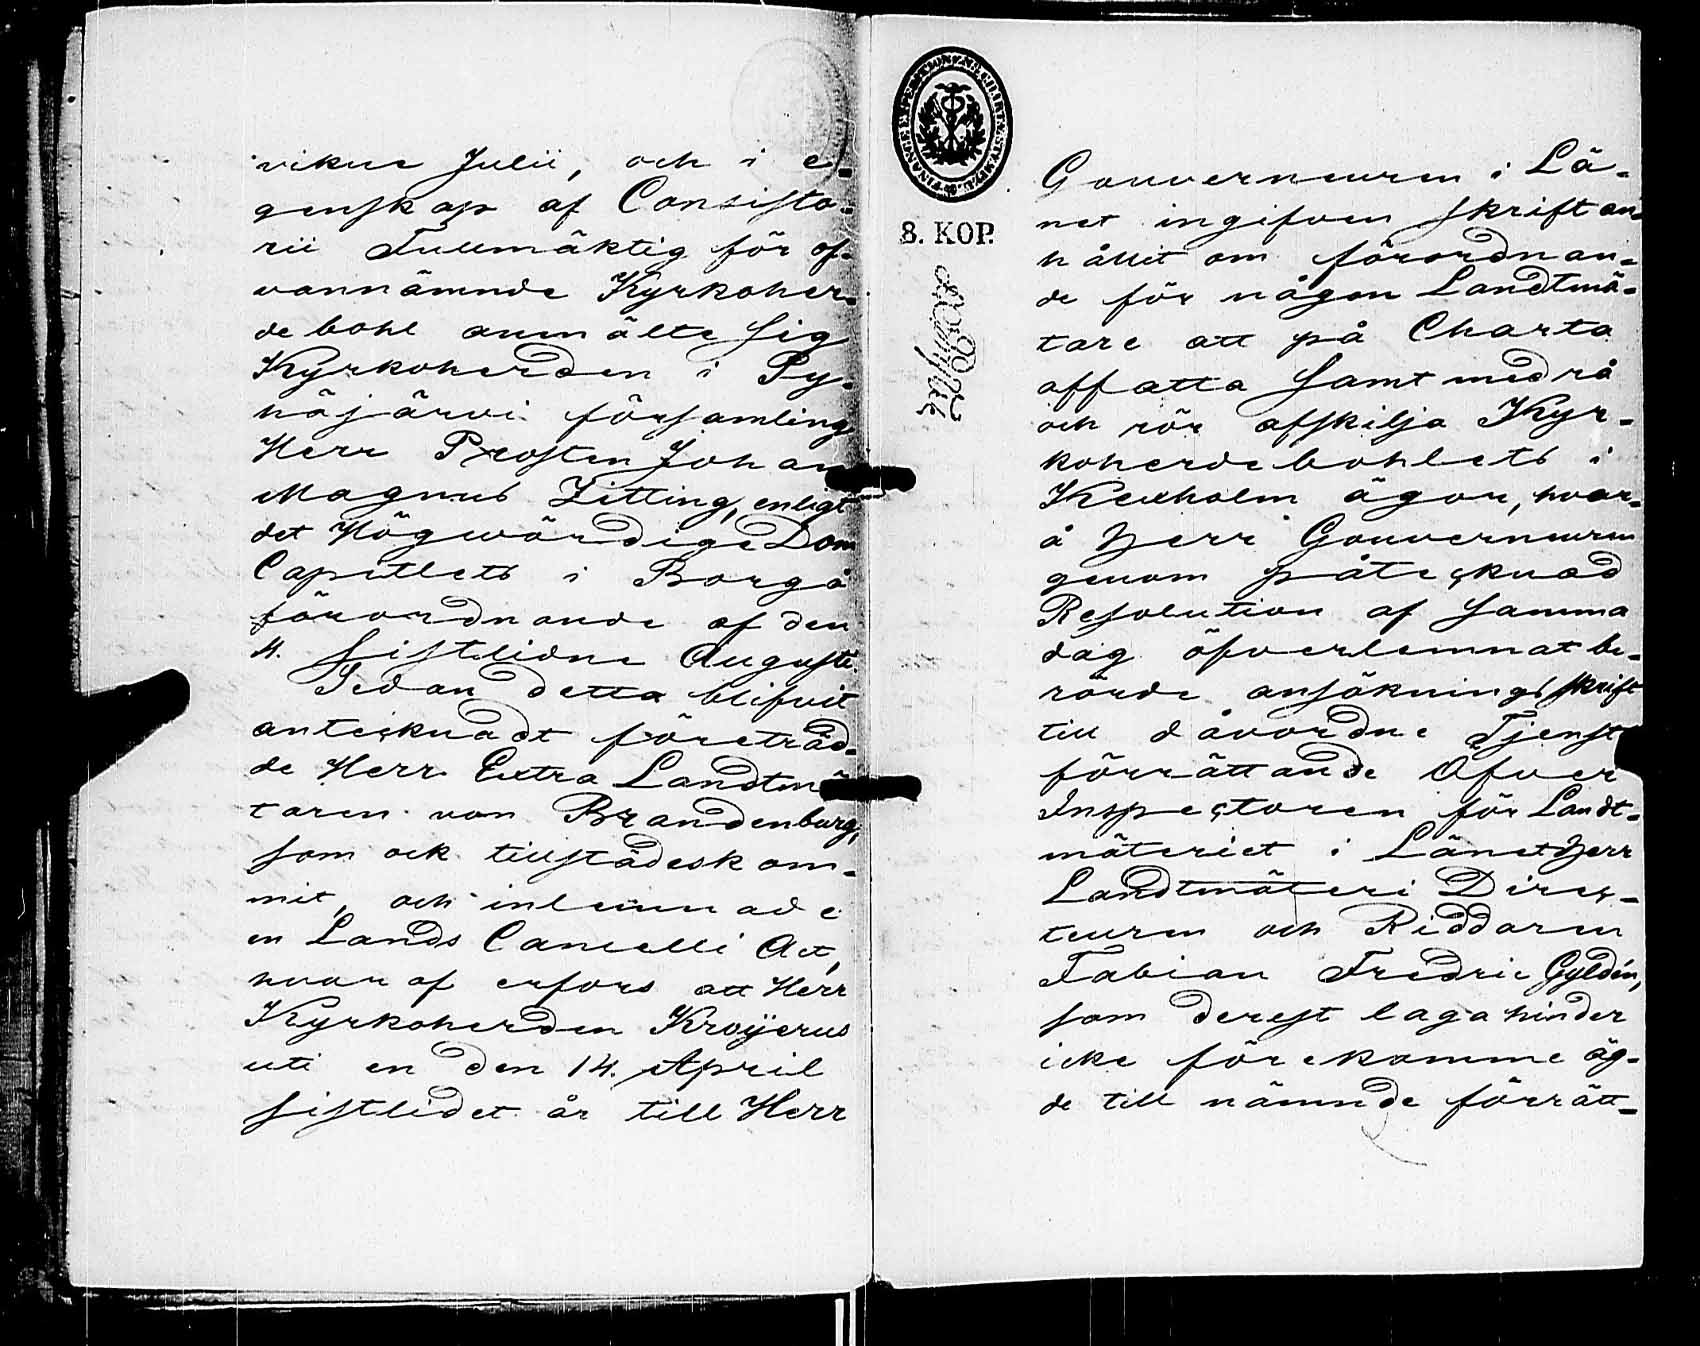 vikne Julii, och i e-
genskap af Consisto-
rii Fullmäktig för of-
vannämnde Kyrkoher-
debohl anmälte sig
Kyrkoherden i Py-
häjärvi församling
Herr Prosten Johan
Magnus Zitting, enligt
det Högwördige Dom
Capitlets i Borgå
förordnande af den
4. sistlidne Augusti.
Sedan detta blifvit
antecknadt företräd-
de Herr Extra Landtmä
taren von Brandenburg,
som ock tillstädeskom-
mit, och inlemnade
en Lands Cancelli Act,
hvaraf erfors att Herr
Kyrkoherden Kroÿerus
uti en den 14. April
sistlidet år till Herr
8. KOP.
Gouverneuren i Lä-
net ingifven skrift an-
hållit om förordnan-
de för någon Landtmä-
tare att på Charta
affatta samt med rå
och rör afskilja Kyr-
koherdebohlets i
Kexholm ägor, hvar-
å Herr Gouverneuren
genom påtecknad
Resolution af samma
dag öfverlemnat be-
rörde ansökningsskrift
till dåvordne Tjenst
förrättande Öfver
Inspectoren för Landt-
mäteriet i Länet Herr
Landtmäteri Direc-
teuren och Riddaren
Fabian Fredric Gyldén,
som derest laga hinder
icke förekomme äg-
de till nämnde förrätt-